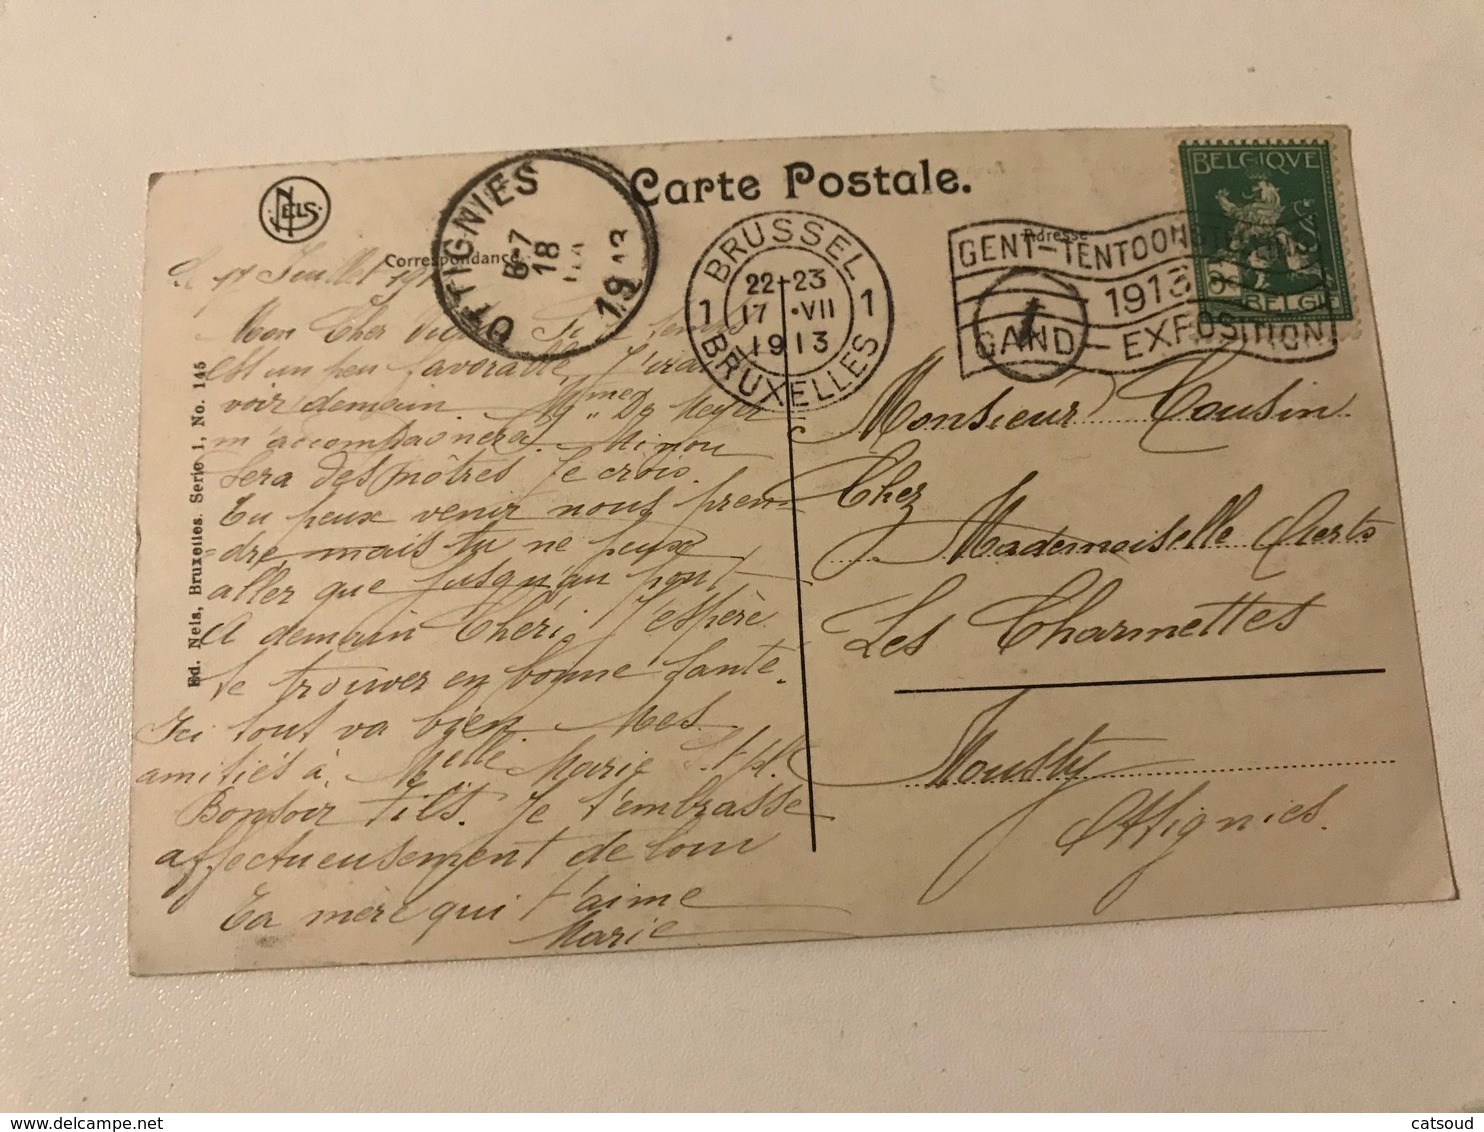 NELS
Carte Postale.
Correspondance
Adresse
OTTIGNIES
6-7
18
1913
BRUSSEL
22-23
1 17 ·VII 1
1913
BRUXELLES
GENT-TENTOON
1913
GAND-EXPOSITION
BELGIQVE
BELGIE
Ed. Nels, Bruxelles. Serie 1, No. 145
17 Juillet 191
Mon Cher Si le temps
est un peu favorable, J'irai
voir demain. Mmes De Meyer
m'accompagnera. Minou
sera des nôtres Je crois.
Tu peux venir nous pren-
dre, mais tu ne peux
aller que jusqu'au pont
A demain Chéri, J'espère
te trouver en bonne santé.
Ici tout va bien. Mes
amitiés à Melle Marie
Bonsoir Fils. Je t'embrasse
affectueusement de loin
Ta mère qui t'aime
Marie
Monsieur Cousin
Chez
Mademoiselle Aerts
Les Charmettes
Mousty
Ottignies.
catsoud
www.delcampe.net